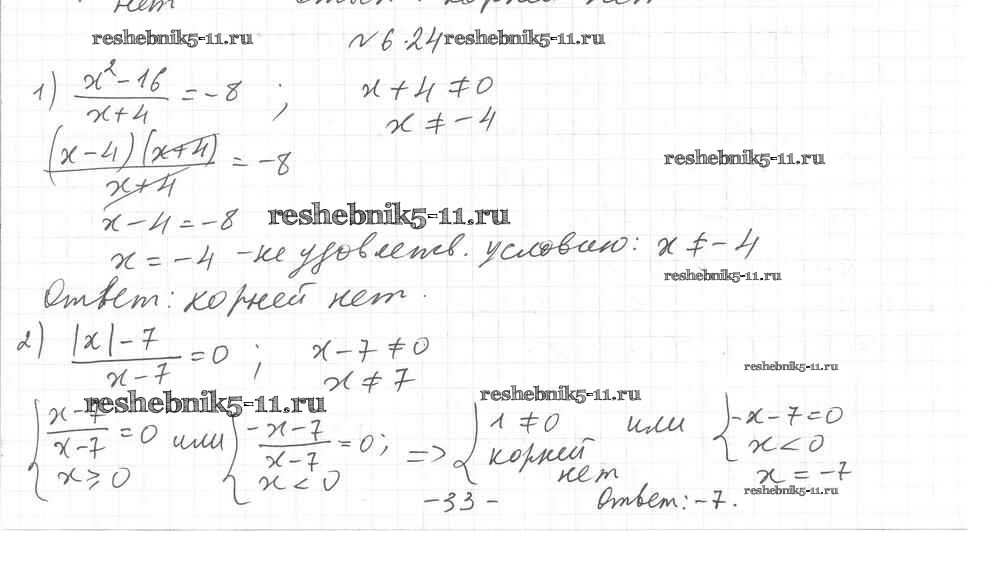 нет корней нет
reshebnik5-11.ru №6.24 reshebnik5-11.ru
1) (x² - 16)/(x + 4) = -8 ; x + 4 ≠ 0
x ≠ -4
((x - 4)(x + 4))/(x + 4) = -8
reshebnik5-11.ru
x - 4 = -8 reshebnik5-11.ru
x = -4 - не удовлетв. условию: x ≠ -4
reshebnik5-11.ru
Ответ: корней нет.
2) (|x| - 7)/(x - 7) = 0 ; x - 7 ≠ 0
x ≠ 7
reshebnik5-11.ru
reshebnik5-11.ru
reshebnik5-11.ru
{ (x - 7)/(x - 7) = 0 или { (-x - 7)/(x - 7) = 0; => { 1 ≠ 0 или { -x - 7 = 0
x ≥ 0 x < 0 корней нет x < 0
x = -7
reshebnik5-11.ru
-33- Ответ: -7.